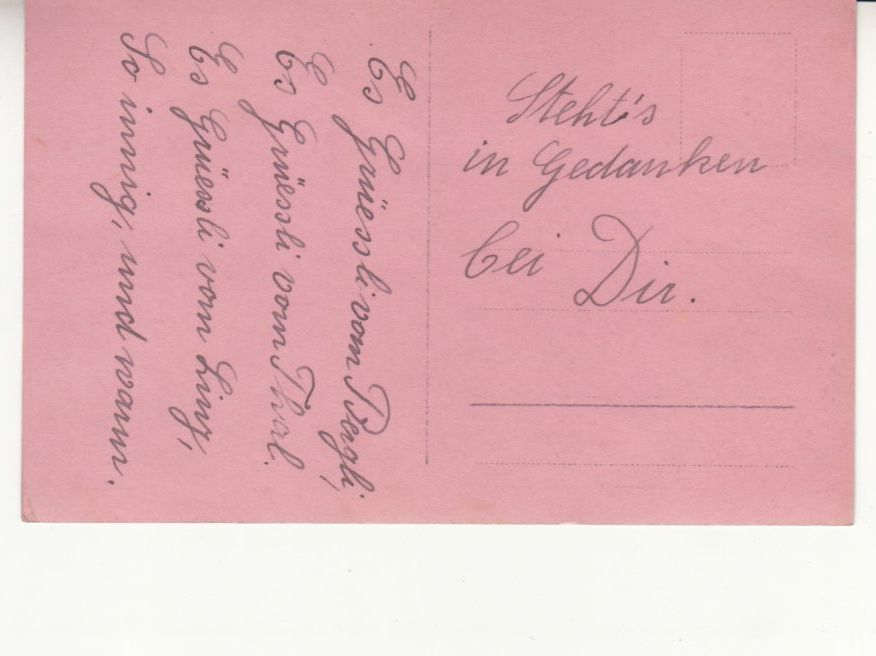 Es Grüessli vom Bergli,
Es Grüessli vom Thal.
Es Grüessli vom Linz,
So innig, und warm.
Steht's
in Gedanken
bei Dir.